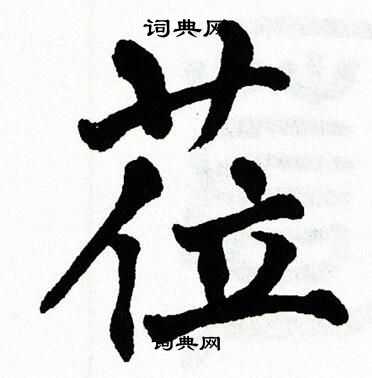 词典网
莅
词典网